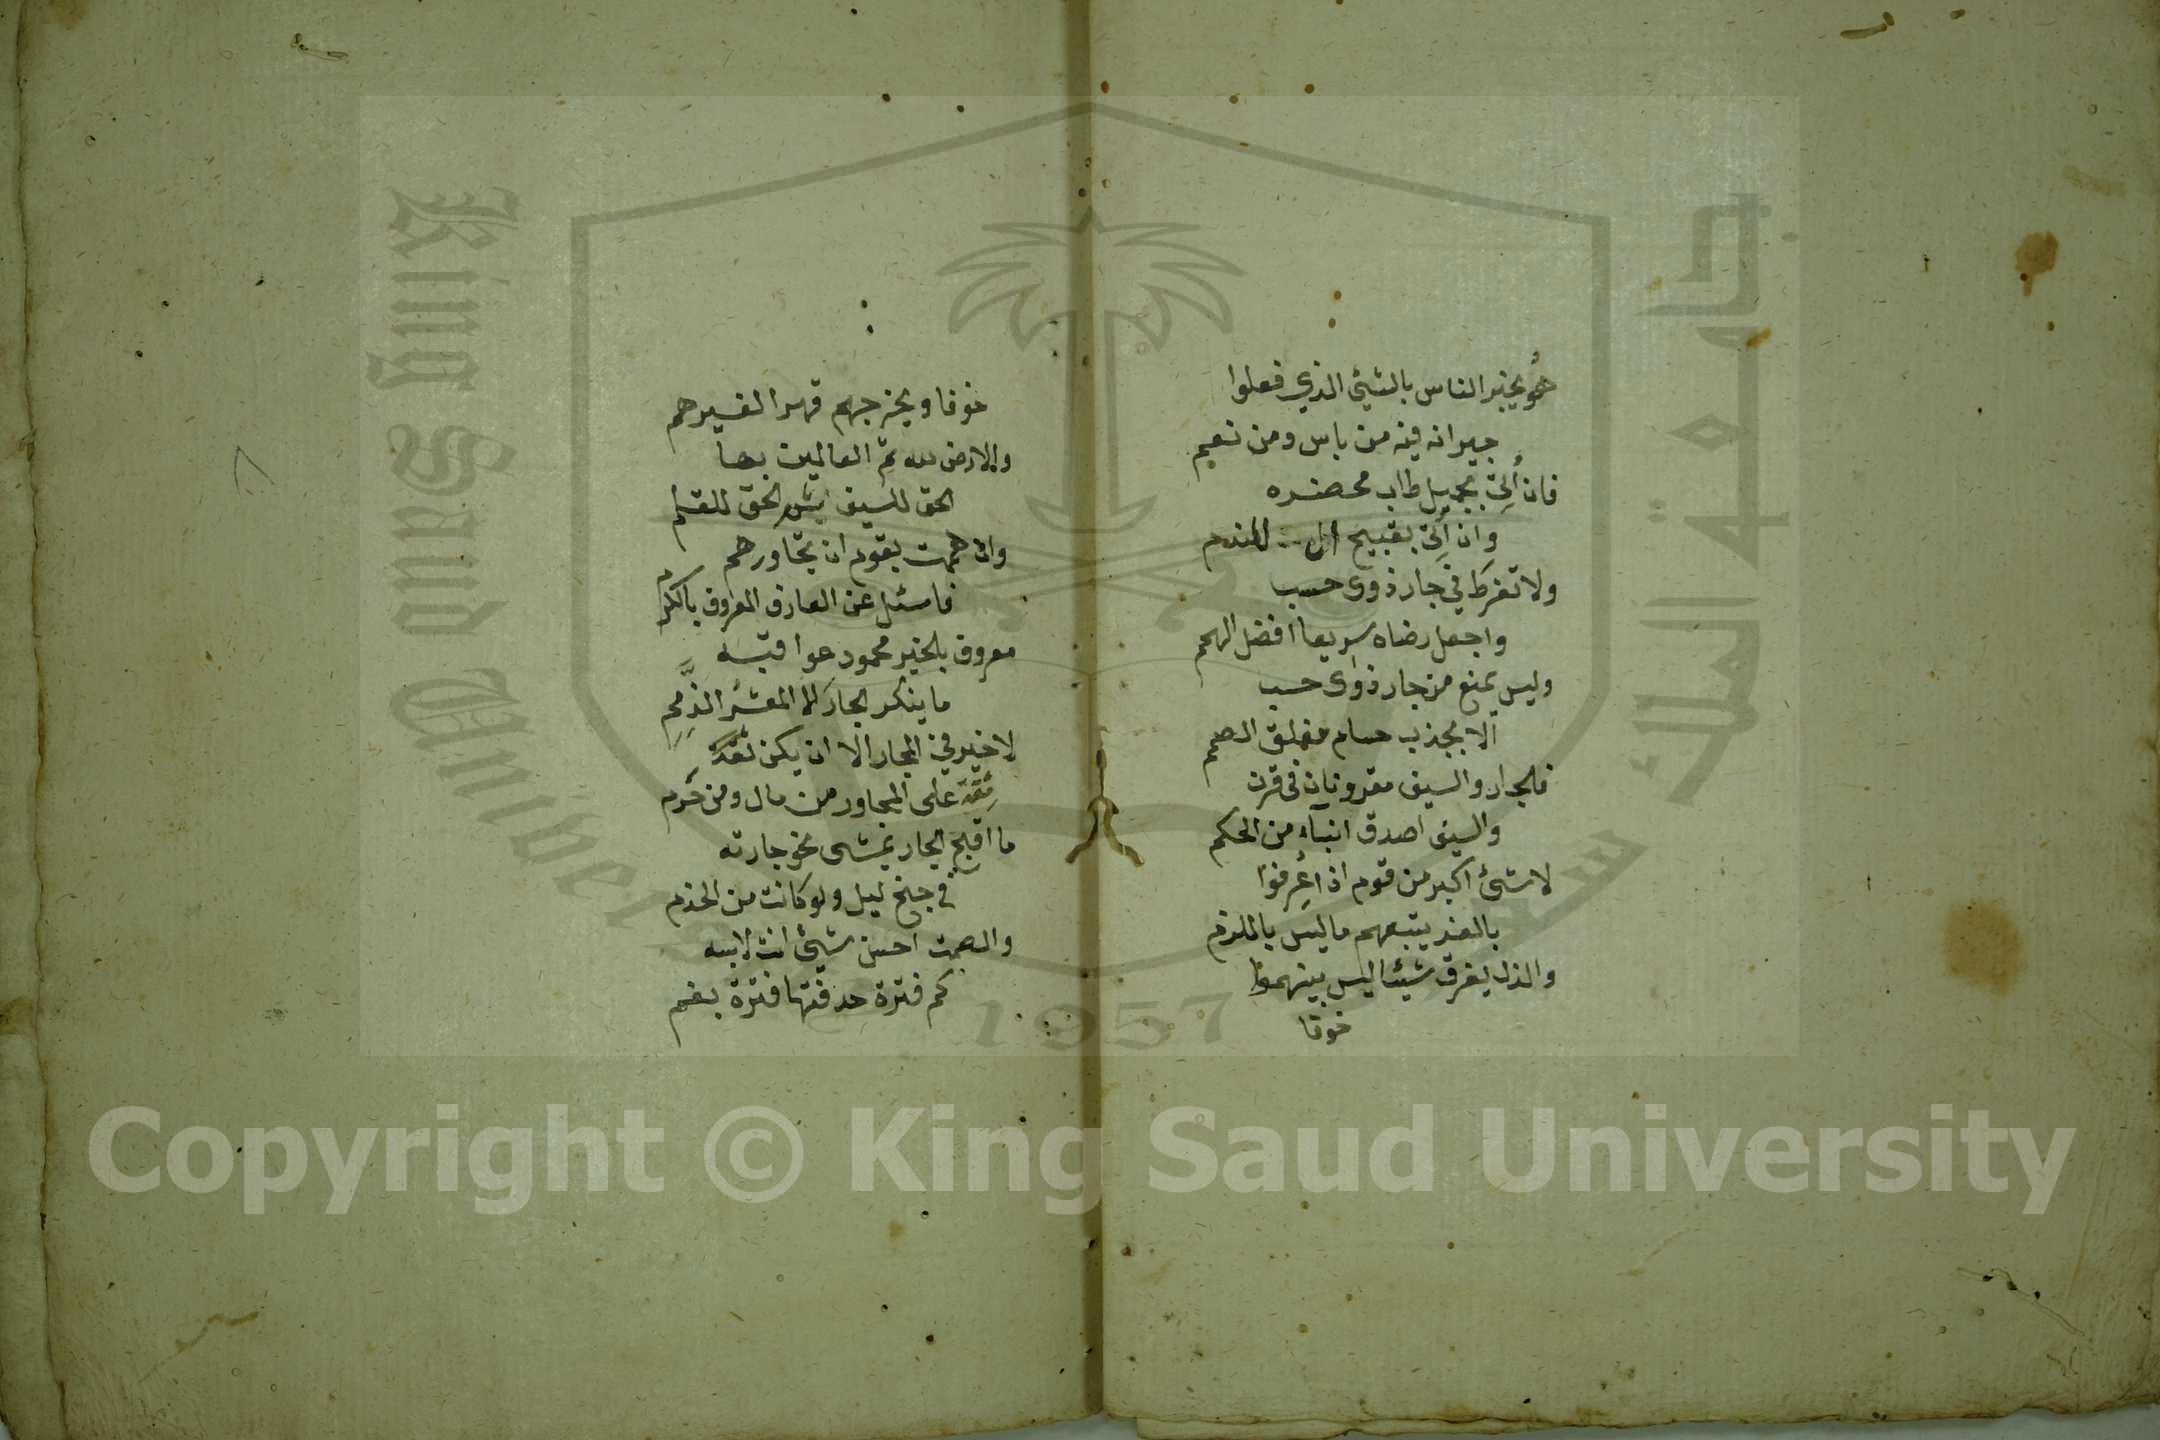 هو يخبر الناس بالشيئ الذي فعلوا
جيرانه فيه من باس ومن نعم
فان أُتِيْ بجميل طاب محضره
وان أُتِيْ بقبيح للندم
ولا تفرط في جار ذوى حسب
واجعل رضاه سريعا افضل الهمم
وليس يمنع من جار ذوى حسب
الا بجذب حسام مفلق الصمم
فلجار والسيف مقرونان في قرن
والسيف اصدق انبآء من الحكم
لا شئ اكبر من قوم اذا عُرِفوا
بالغدر يتبعهم ما ليس بالملزم
والذل يفرق شيئا ليس بينهموا
خوفا
خوفا ويخرجهم قهرا لغيرهم
والارض لله ثم العالمين بها
الحق للسيف ليس الحق للقلم
وان هممت بقوم ان تجاورهم
فاسئل عن العارف المعروف بالكرم
معروف بلخير محمود عواقبه
ما ينكر الجار الا المعشر الذمم
لا خير في الجار الا ان يكن ثقة
ثقة على المجاور من مال ومن حرم
ما اقبح الجار يمشى نحو جارته
في جنح ليل ولو كانت من الخدم
والصمت احسن شيئ انت لابسه
كم فترة حدفتها فترة بفم
جامعة الملك سعود
King Saud University
1957
Copyright © King Saud University